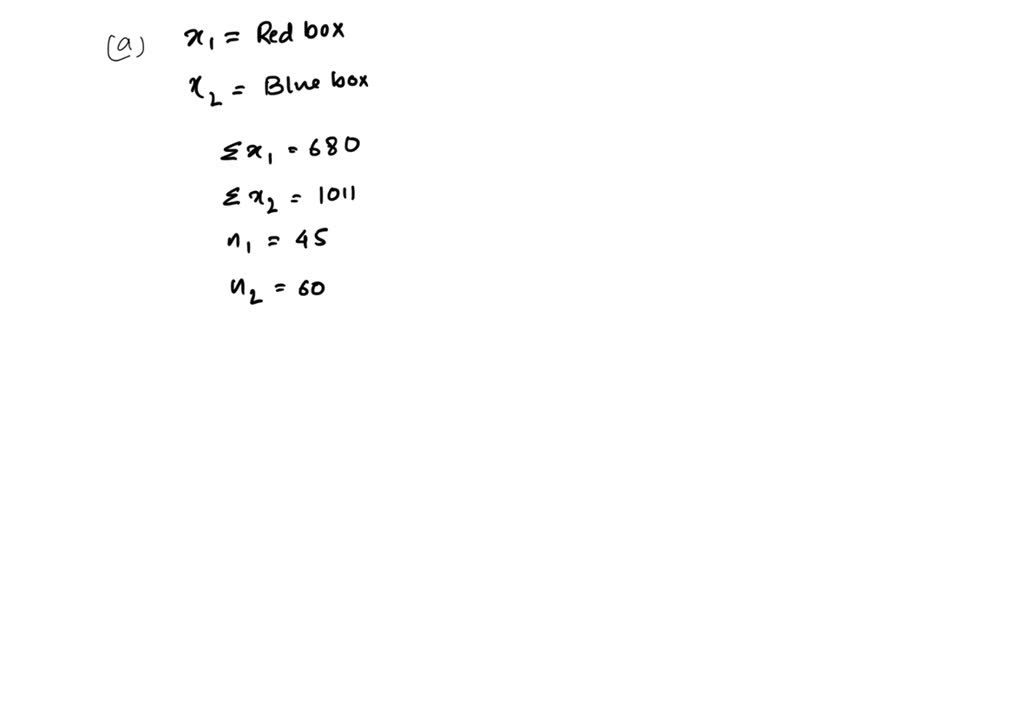 (a) x₁ = Red box
x₂ = Blue box
Σx₁ = 680
Σx₂ = 1011
n₁ = 45
n₂ = 60